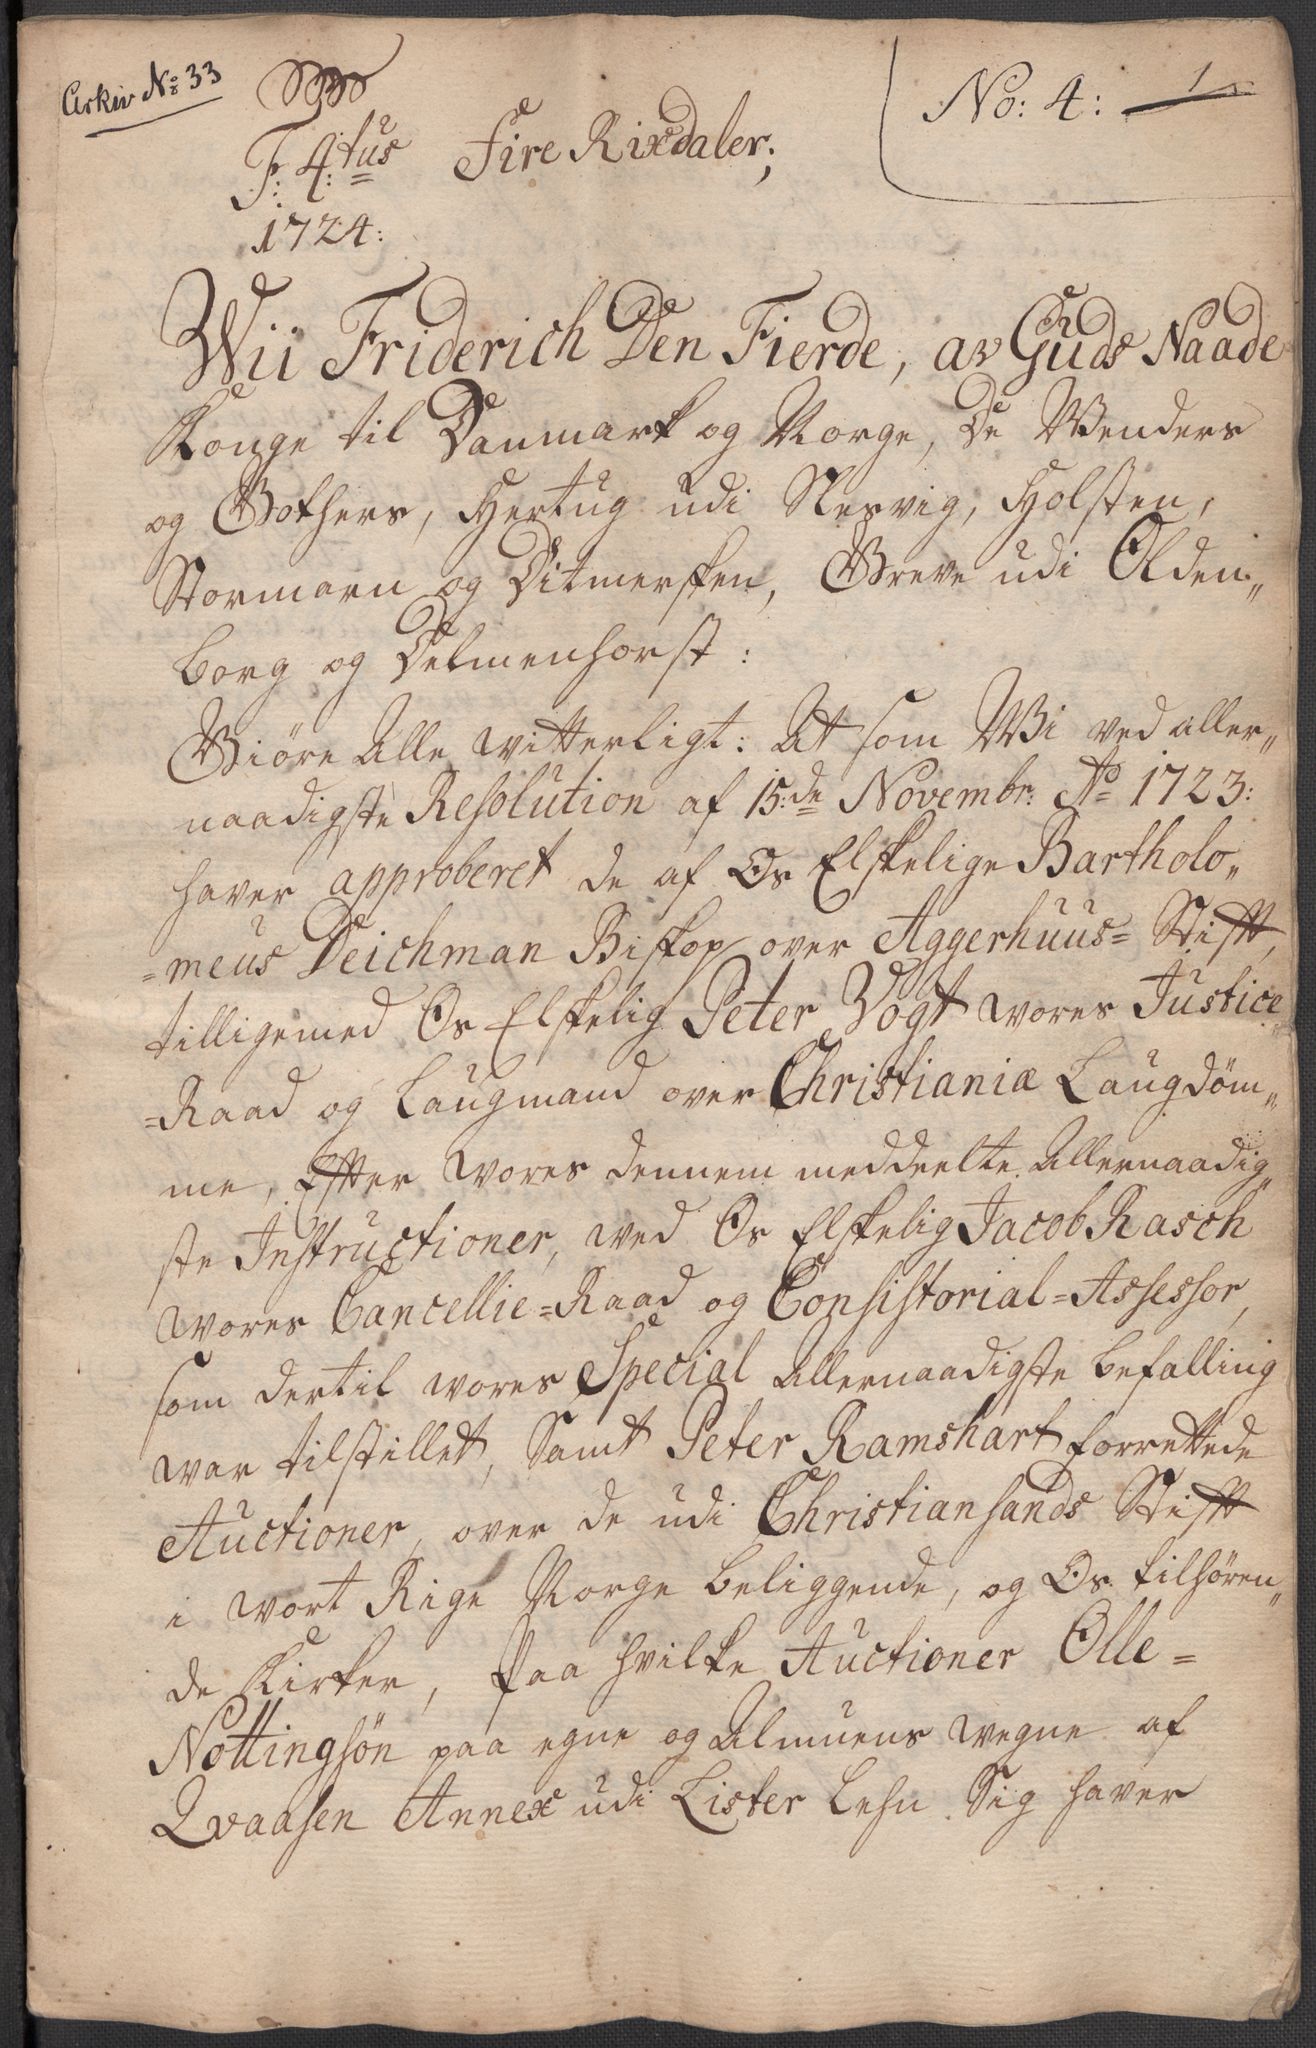 Arkiv No: 33
No: 4: 1
F: 4:tus Fire Rixdaler;
1724:
Wii Friderich Den Fierde, av Guds Naade
Konge til Danmark og Norge, De Wenders
og Gothers, Hertug udi Slesvig, Holsten,
Stormarn og Ditmersken, Greve udi Olden„
borg og Delmenhorst:
Giöre Alle witterligt: At som Wi ved aller„
naadigste Resolution af 15:de Novembr: Ao 1723:
haver approberet de af Os Elskelige Bartholo„
=meus Deichman Biskop over Aggerhuus= Stift,
tilligemed Os Elskelig Peter Vogt wores Justice
=Raad og Laugmand over Christianiæ Laugdöm„
me, Efter wores dennem meddeelte Allernaadig„
ste Instructioner, wed Os Elskelig Jacob Rasch
wores Cancellie=Raad og Consistorial=Assessor,
som dertil wores Special Allernaadigste befalling
war tilstillet, Samt Peter Ramshart forrettede
Auctioner, over de udi Christiansands Stift
i wort Rige Norge beliggende, og Os tilhören„
de Kirker, paa hvilke Auctioner Olle=
Nottingsön paa egne og Almuens wegne af
Qvaasen Annex udi Lister Lehn Sig haver